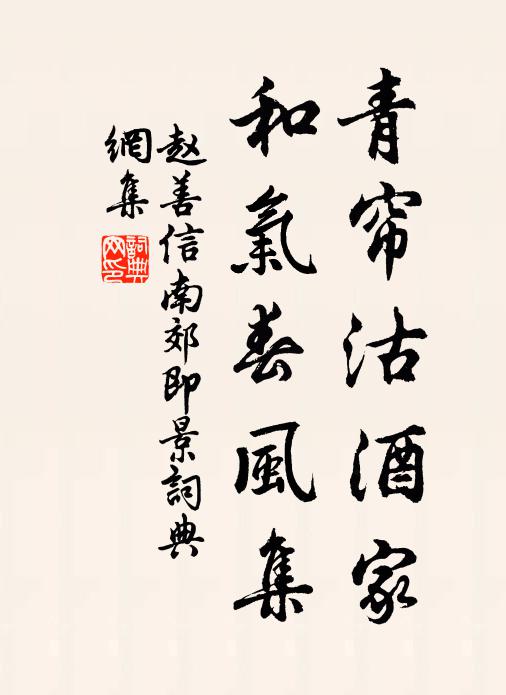 青帘沽酒家
和氣春風集
赵善信南郊即景詞典
網集
詞典網印